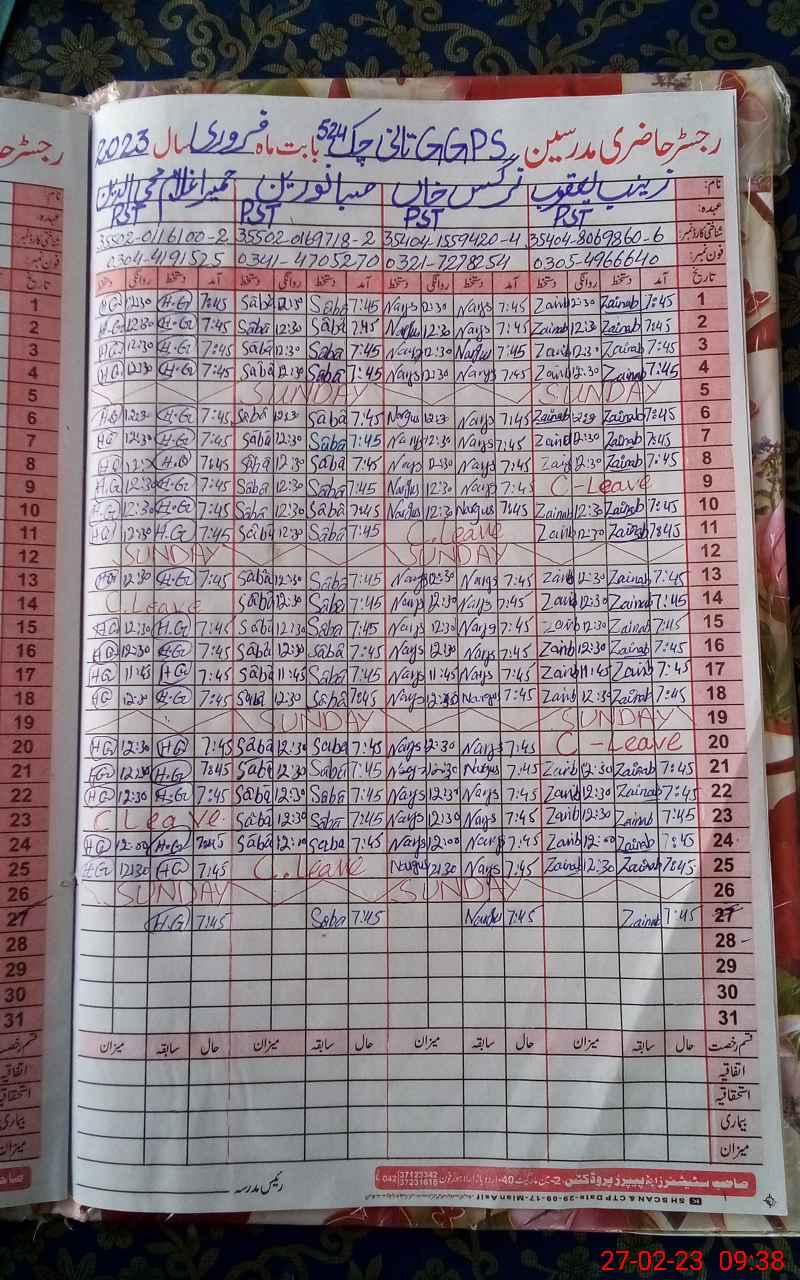 رجسٹر حاضری مدرسین GGPS ثانی چک 524 بابت ماہ فروری سال 2023
نام: زینب یعقوب نرگس خاں صبا نورین حمیرا غلام محی الدین
عہدہ: PST PST PST PST
شناختی کارڈ نمبر: 35404-8069860-6 35404-1559420-4 35502-0169718-2 35502-0116100-2
فون نمبر: 0305-4966640 0321-7278254 0341-4705270 0304-4191525
تاریخ آمد دستخط روانگی دستخط آمد دستخط روانگی دستخط آمد دستخط روانگی دستخط آمد دستخط روانگی دستخط
1 7:45 Zainab 12:30 Zainb 7:45 Nargs 12:30 Nargs 7:45 Saba 12:30 Saba 7:45 H.G 12:30 H.G
2 7:45 Zainab 12:30 Zainb 7:45 Nargs 12:30 Nargus 7:45 Saba 12:30 Saba 7:45 H.G 12:30 H.G
3 7:45 Zainab 12:30 Zainb 7:45 Nargus 12:30 Nargs 7:45 Saba 12:30 Saba 7:45 H.G 12:30 H.G
4 7:45 Zainab 12:30 Zainb 7:45 Nargs 12:30 Nargs 7:45 Saba 12:30 Saba 7:45 H.G 12:30 H.G
5 SUNDAY SUNDAY
6 7:45 Zainab 12:30 Zainab 7:45 Nargs 12:30 Nargus 7:45 Saba 12:30 Saba 7:45 H.G 12:30 H.G
7 7:45 Zainab 12:30 Zainb 7:45 Nargs 12:30 Nargs 7:45 Saba 12:30 Saba 7:45 H.G 12:30 HG
8 7:45 Zainab 12:30 Zainb 7:45 Nargs 12:30 Nargs 7:45 Saba 12:30 Saba 7:45 H.G HG
9 C-Leave 7:45 Nargs 12:30 Nargus 7:45 Saba 12:30 Saba 7:45 H.G 12:30 H.G
10 7:45 Zainab 12:30 Zainab 7:45 Nargus 12:30 Nargus 7:45 Saba 12:30 Saba 7:45 H.G 12:30 H.G
11 7:45 Zainab 12:30 Zainb C.Leave 7:45 Saba 12:30 Saba 7:45 H.G 12:30 HG
12 SUNDAY SUNDAY
13 7:45 Zainab 12:30 Zainb 7:45 Nargs 12:30 Nargs 7:45 Saba 12:30 Saba 7:45 H.G 12:30 HG
14 7:45 Zainab 12:30 Zainb 7:45 Nargs 12:30 Nargs 7:45 Saba 12:30 Saba C.Leave
15 7:45 Zainab 12:30 Zainb 7:45 Nargs 12:30 Nargs 7:45 Saba 12:30 Saba 7:45 H.G 12:30 HG
16 7:45 Zainab 12:30 Zainb 7:45 Nargs 12:30 Nargs 7:45 Saba 12:30 Saba 7:45 H.G 12:30 HG
17 7:45 Zainab 11:45 Zainb 7:45 Nargs 11:45 Nargs 7:45 Saba 11:45 Saba 7:45 HG 11:45 HG
18 7:45 Zainab 12:30 Zainb 7:45 Nargus 12:30 Nargs 7:45 Saba 12:30 Saba 7:45 H.G 12:30 HG
19 SUNDAY SUNDAY
20 C-Leave 7:45 Nargs 12:30 Nargs 7:45 Saba 12:30 Saba 7:45 HG 12:30 HG
21 7:45 Zainab 12:30 Zainb 7:45 Nargus 12:30 Nargs 7:45 Saba 12:30 Saba 7:45 H.G 12:30 HG
22 7:45 Zainab 12:30 Zainb 7:45 Nargs 12:30 Nargs 7:45 Saba 12:30 Saba 7:45 H.G 12:30 HG
23 7:45 Zainab 12:30 Zainb 7:45 Nargs 12:30 Nargs 7:45 Saba 12:30 Saba C Leave
24 7:45 Zainab 12:00 Zainb 7:45 Nargs 12:00 Nargs 7:45 Saba Saba 7:45 H.G 12:00 HG
25 7:45 Zainab 12:30 Zainab 7:45 Nargs 12:30 Nargus C.Leave 7:45 HG 12:30 H.G
26 SUNDAY SUNDAY
27 7:45 Zainab 7:45 Nargu 7:45 Saba 7:45 H.G
28
29
30
31
قسم رخصت حال سابقہ میزان حال سابقہ میزان حال سابقہ میزان حال سابقہ میزان
اتفاقیہ
استحقاقیہ
بیماری
میزان
رئیس مدرسہ
37123342
042 37231616
SH SCAN & CTP Date-29-09-17-Mian Asif
27-02-23 09:38